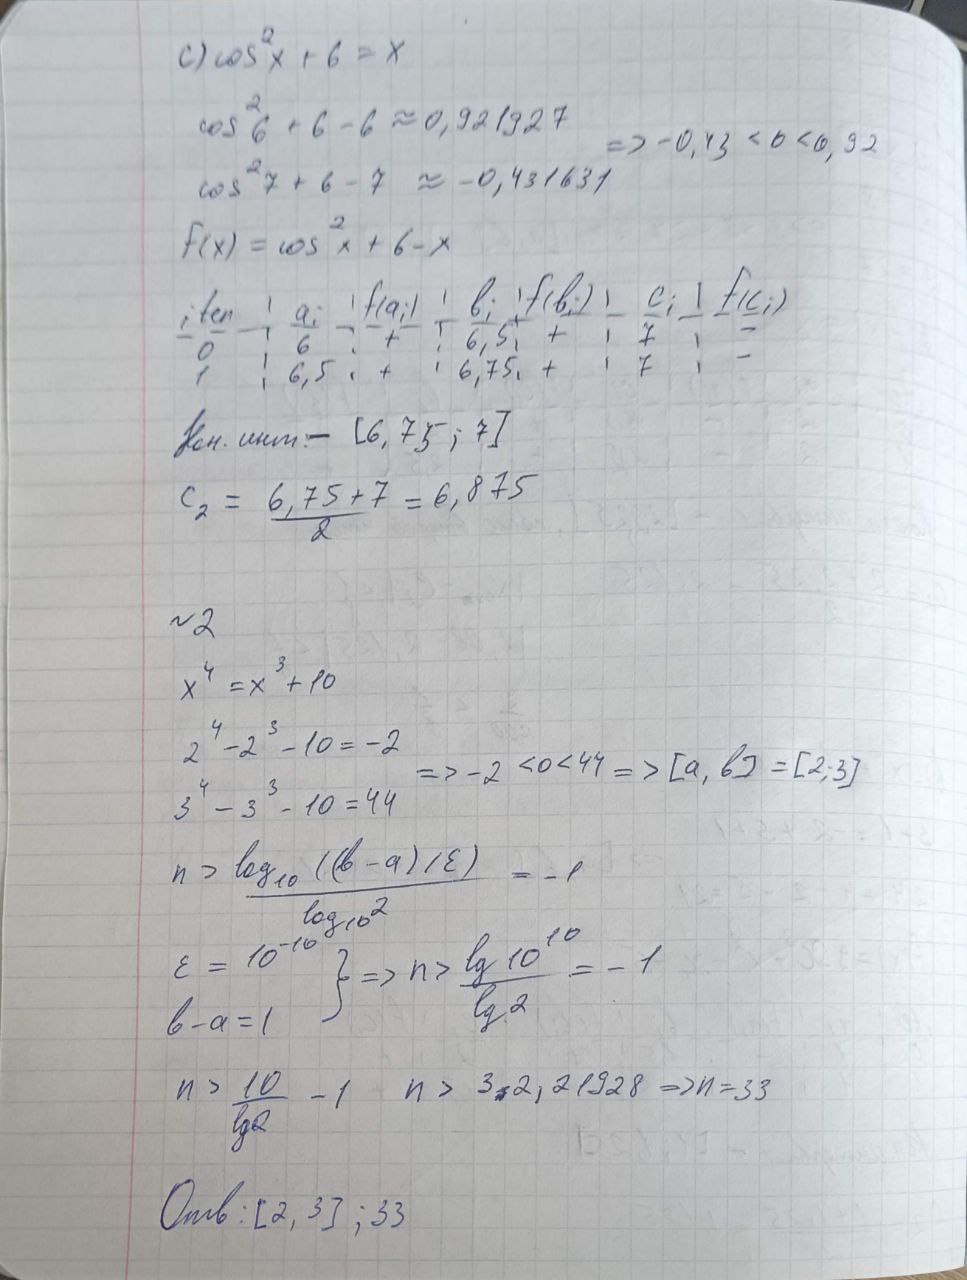 c) cos²x + 6 = x
cos²6 + 6 - 6 ≈ 0,921927
cos²7 + 6 - 7 ≈ -0,431631
=> -0,43 < 0 < 0,92
f(x) = cos²x + 6 - x
iter | ai | f(ai) | bi | f(bi) | ci | f(ci)
0 | 6 | + | 6,5 | + | 7 | -
1 | 6,5 | + | 6,75 | + | 7 | -
Кон. инт. - [6,75; 7]
c₂ = (6,75 + 7)/2 = 6,875
~2
x⁴ = x³ + 10
2⁴ - 2³ - 10 = -2
3⁴ - 3³ - 10 = 44
=> -2 < 0 < 44 => [a, b] = [2;3]
n > log₁₀((b - a)/ε)/log₁₀2 = -1
ε = 10⁻¹⁰
b - a = 1
} => n > lg 10¹⁰/lg 2 = -1
n > 10/lg2 - 1 n > 32,21928 => n = 33
Отв: [2, 3] ; 33